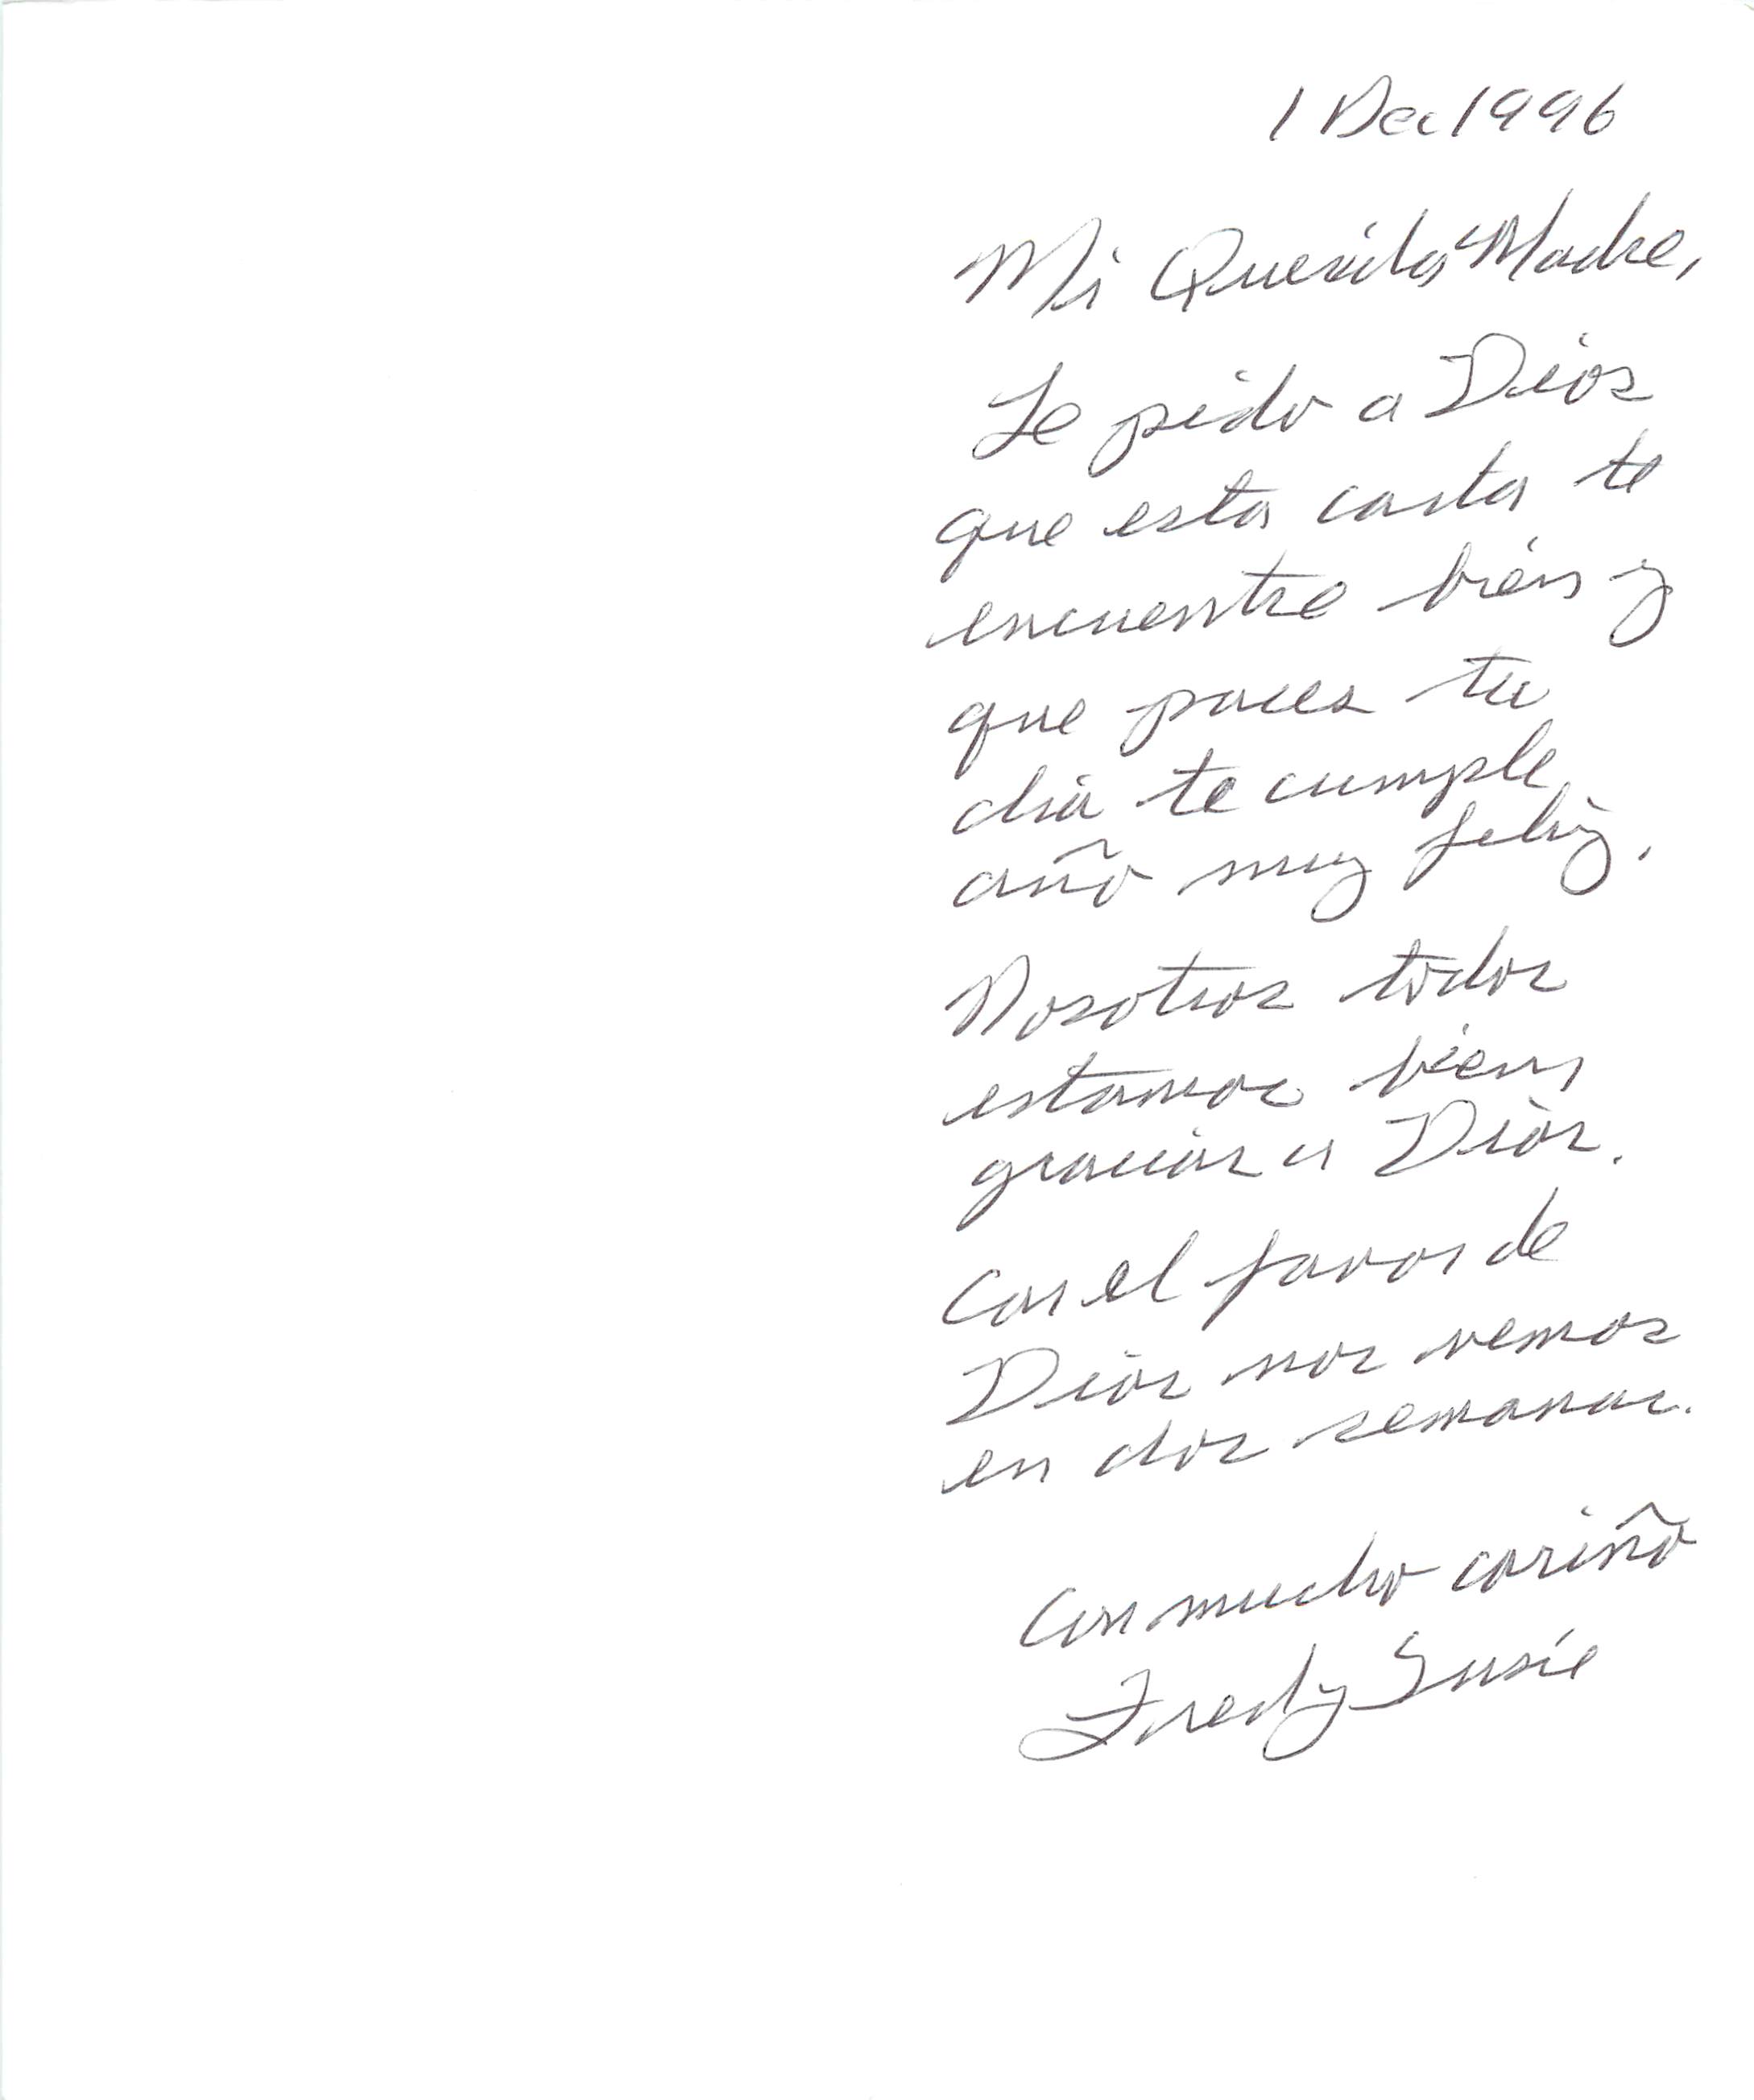 1 Dec 1996
Mi Querida Madre,
Le pido a Dios
que esta carta te
encuentre bien y
que paces tu
dia te cumple
año muy feliz.
Nosotros todos
estamos bien
gracias a Dios.
Con el favor de
Dios nos vemos
en dos semanas.
Con mucho cariño
Fred y Susie